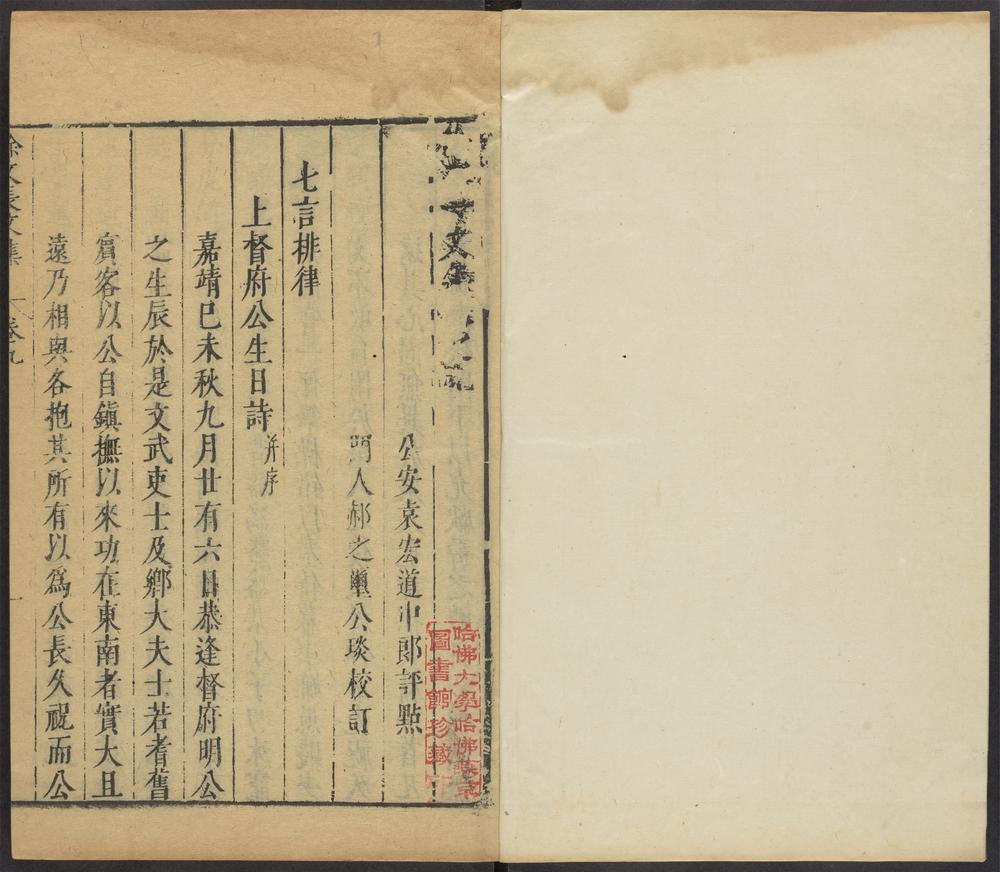 文集
公安袁宏道中郎評點
門人郝之璽公琰校訂
七言排律
上督府公生日詩并序
嘉靖己未秋九月廿有六日恭逢督府明公
之生辰於是文武吏士及鄉大夫士若耆舊
賓客以公自鎮撫以來功在東南者實大且
遠乃相與各抱其所有以為公長久祝而公
徐文長文集 卷九 一
哈佛大學哈佛燕京
圖書館珍藏印